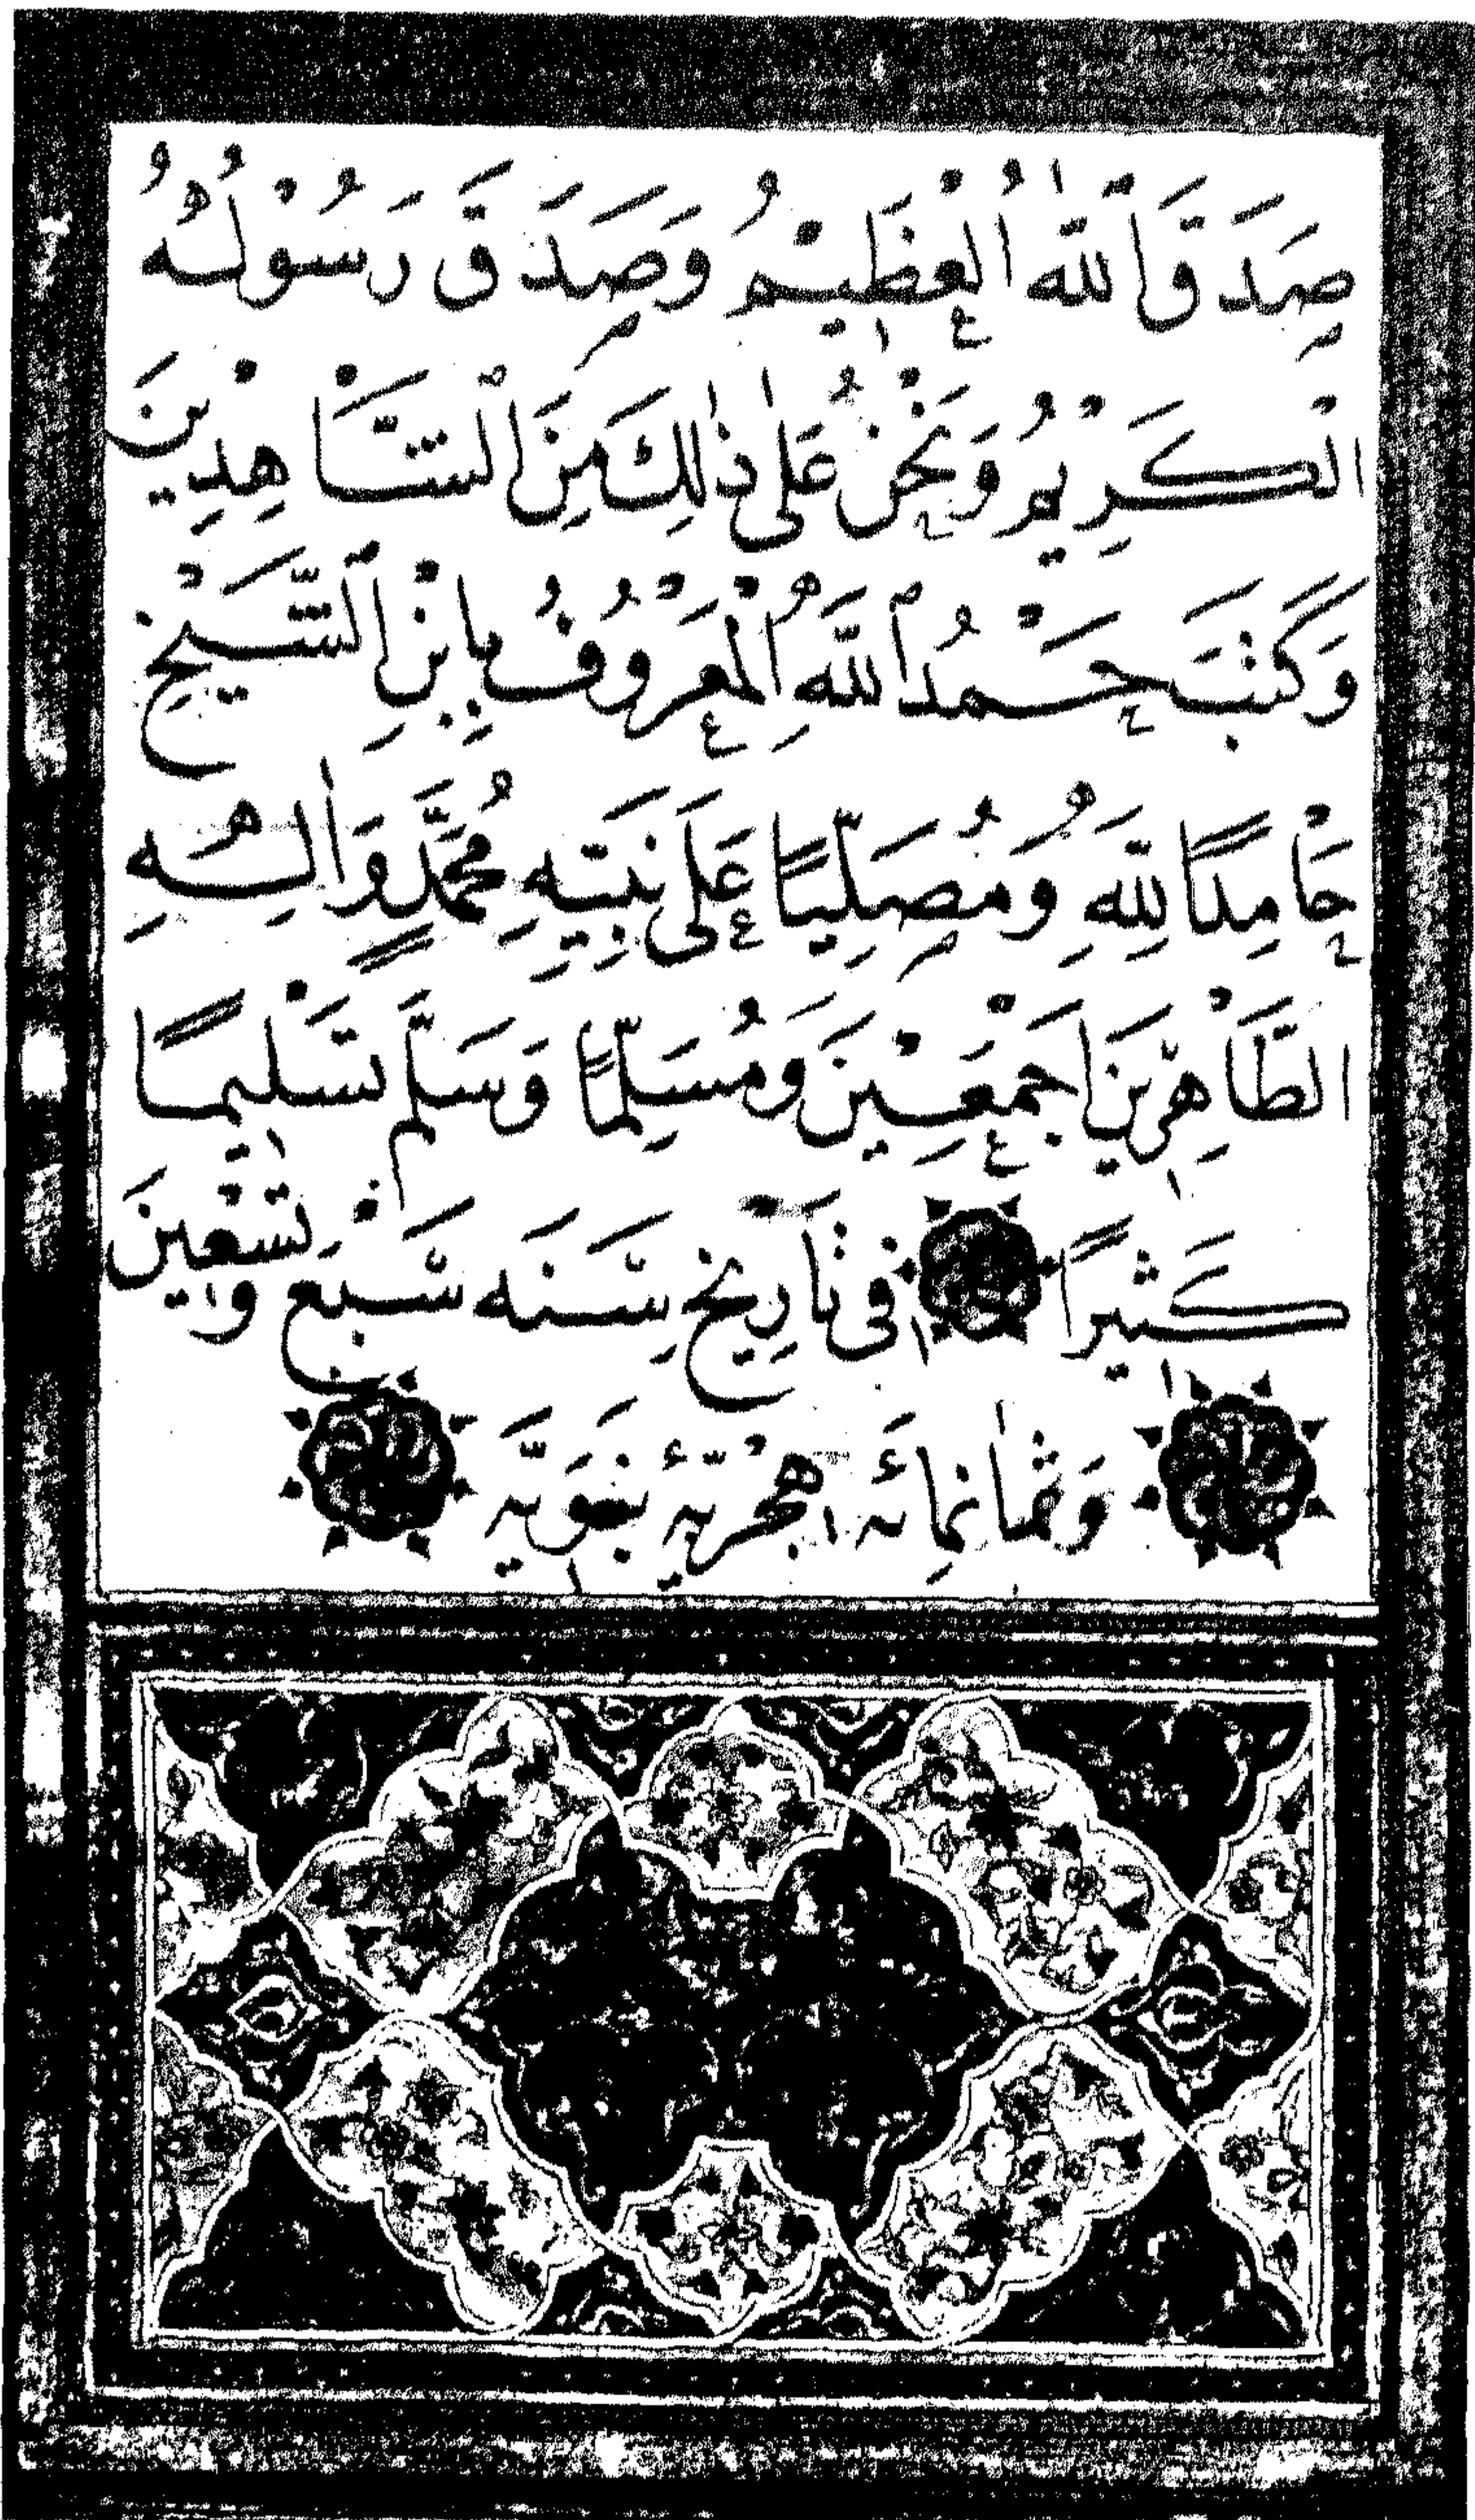 صَدَقَ اللّٰهُ الْعَظِيْمُ وَصَدَقَ رَسُوْلُهُ
الْكَرِيْمُ وَنَحْنُ عَلٰى ذٰلِكَ مِنَ الشَّاهِدِيْنَ
وَكَتَبَ حَمْدُ اللّٰهِ الْمَعْرُوْفُ بِابْنِ الشَّيْخِ
حَامِدًا لِلّٰهِ وَمُصَلِّيًا عَلَى نَبِيِّهِ مُحَمَّدٍ وَاٰلِهِ
الطَّاهِرِيْنَ اَجْمَعِيْنَ وَمُسَلِّمًا وَسَلَّمَ تَسْلِيمًا
كَثِيْرًا فِي تَارِيخِ سَنَه سَبْع وَتِسْعِينَ
وَثَمٰانمِائَه هِجْرِيّه نَبَوِيَّه